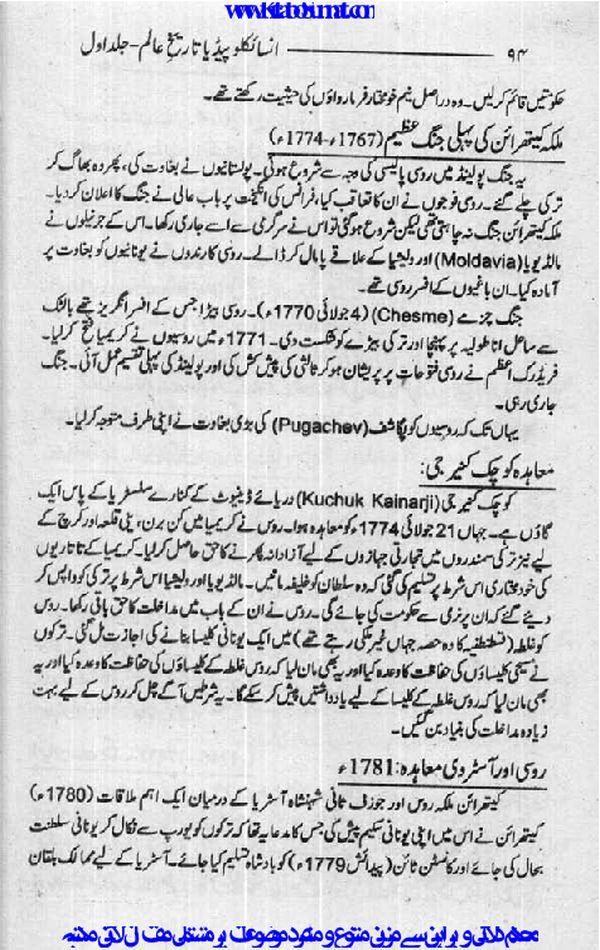 www.KitaboSunnat.com
۹۴ ——— انسائیکلوپیڈیا تاریخِ عالم - جلد اول
حکومتیں قائم کر لیں۔ وہ دراصل نیم خود مختار فرمارواؤں کی حیثیت رکھتے تھے۔
ملکہ کیتھرائن کی پہلی جنگ عظیم (1767ء-1774ء)
یہ جنگ پولینڈ میں روسی پالیسی کی وجہ سے شروع ہوئی۔ پولستانیوں نے بغاوت کی، پھر وہ بھاگ کر
ترکی چلے گئے۔ روسی فوجوں نے ان کا تعاقب کیا، فرانس کی انگیخت پر باب عالی نے جنگ کا اعلان کر دیا۔
ملکہ کیتھرائن جنگ نہ چاہتی تھی لیکن شروع ہو گئی تو اس نے سرگرمی سے اسے جاری رکھا۔ اس کے جرنیلوں نے
مالڈیویا (Moldavia) اور ولیشیا کے علاقے پامال کر ڈالے۔ روسی کارندوں نے یونانیوں کو بغاوت پر
آمادہ کیا۔ ان باغیوں کے افسر روسی تھے۔
جنگ چزمے (Chesme) (4 جولائی 1770ء)۔ روسی بیڑا جس کے افسر انگریز تھے بالٹک
سے ساحل اناطولیہ پر پہنچا اور ترکی بیڑے کو شکست دی۔ 1771ء میں روسیوں نے کریمیا فتح کر لیا۔
فریڈرک اعظم نے روسی فتوحات پر پریشان ہو کر ثالثی کی پیش کش کی اور پولینڈ کی پہلی تقسیم عمل آئی۔ جنگ
جاری رہی۔
یہاں تک کہ روسیوں کو پگاشف (Pugachev) کی بڑی بغاوت نے اپنی طرف متوجہ کر لیا۔
معاہدہ کوچک کنیرجی:
کوچک کنیر جی (Kuchuk Kainarji) دریائے ڈینیوٹ کے کنارے سلسٹریا کے پاس ایک
گاؤں ہے۔ جہاں 21 جولائی 1774ء کو معاہدہ ہوا۔ روس نے کریمیا میں کن برن، ینی قلعہ اور کرچ کے
لیے نیز ترکی سمندروں میں تجارتی جہازوں کے لیے آزادانہ پھرنے کا حق حاصل کر لیا۔ کریمیا کے تاتاریوں
کی خود مختاری اس شرط پر تسلیم کی گئی کہ وہ سلطان کو خلیفہ مانیں۔ مالڈیویا اور ولیشیا اس شرط پر ترکی کو واپس کر
دیئے گئے کہ ان پر نرمی سے حکومت کی جائے گی۔ روس نے ان کے باب میں مداخلت کا حق باقی رکھا۔ روس
کو غلطہ (قسطنطنیہ کا وہ حصہ جہاں غیر ملکی رہتے تھے) میں ایک یونانی کلیسا بنانے کی اجازت مل گئی۔ ترکوں
نے مسیحی کلیساؤں کی حفاظت کا وعدہ کیا اور یہ بھی مان لیا کہ روس غلطہ کے کلیساؤں کی حفاظت کا وعدہ کیا اور یہ
بھی مان لیا کہ روس غلطہ کے کلیسا کے لیے یادداشتیں پیش کر سکے گا۔ یہ شرطیں آگے چل کر روس کے لیے بہت
زیادہ مداخلت کی بنیاد بن گئیں۔
روسی اور آسٹروی معاہدہ: 1781ء
کیتھرائن ملکہ روس اور جوزف ثانی شہنشاہ آسٹریا کے درمیان ایک اہم ملاقات (1780ء)
کیتھرائن نے اس میں اپنی یونانی سکیم پیش کی جس کا مدعا یہ تھا کہ ترکوں کو یورپ سے نکال کر یونانی سلطنت
بحال کی جائے اور کانسٹن ٹائن (پیدائش 1779ء) کو بادشاہ تسلیم کیا جائے۔ آسٹریا کے لیے ممالک بلقان
محکم دلائل و براہین سے مزین متنوع و منفرد موضوعات پر مشتمل مفت آن لائن مکتبہ